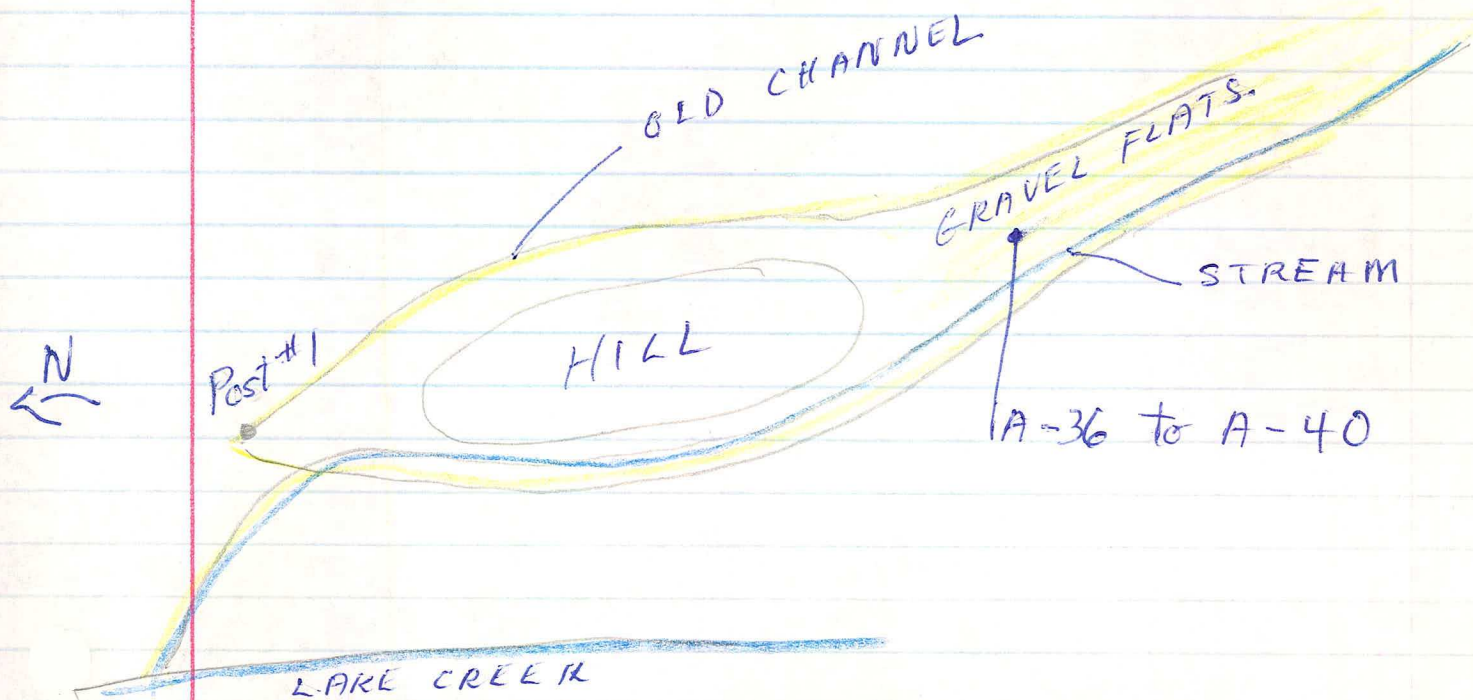 OLD CHANNEL
GRAVEL FLATS.
STREAM
HILL
Post #1
N
A-36 to A-40
LAKE CREEK